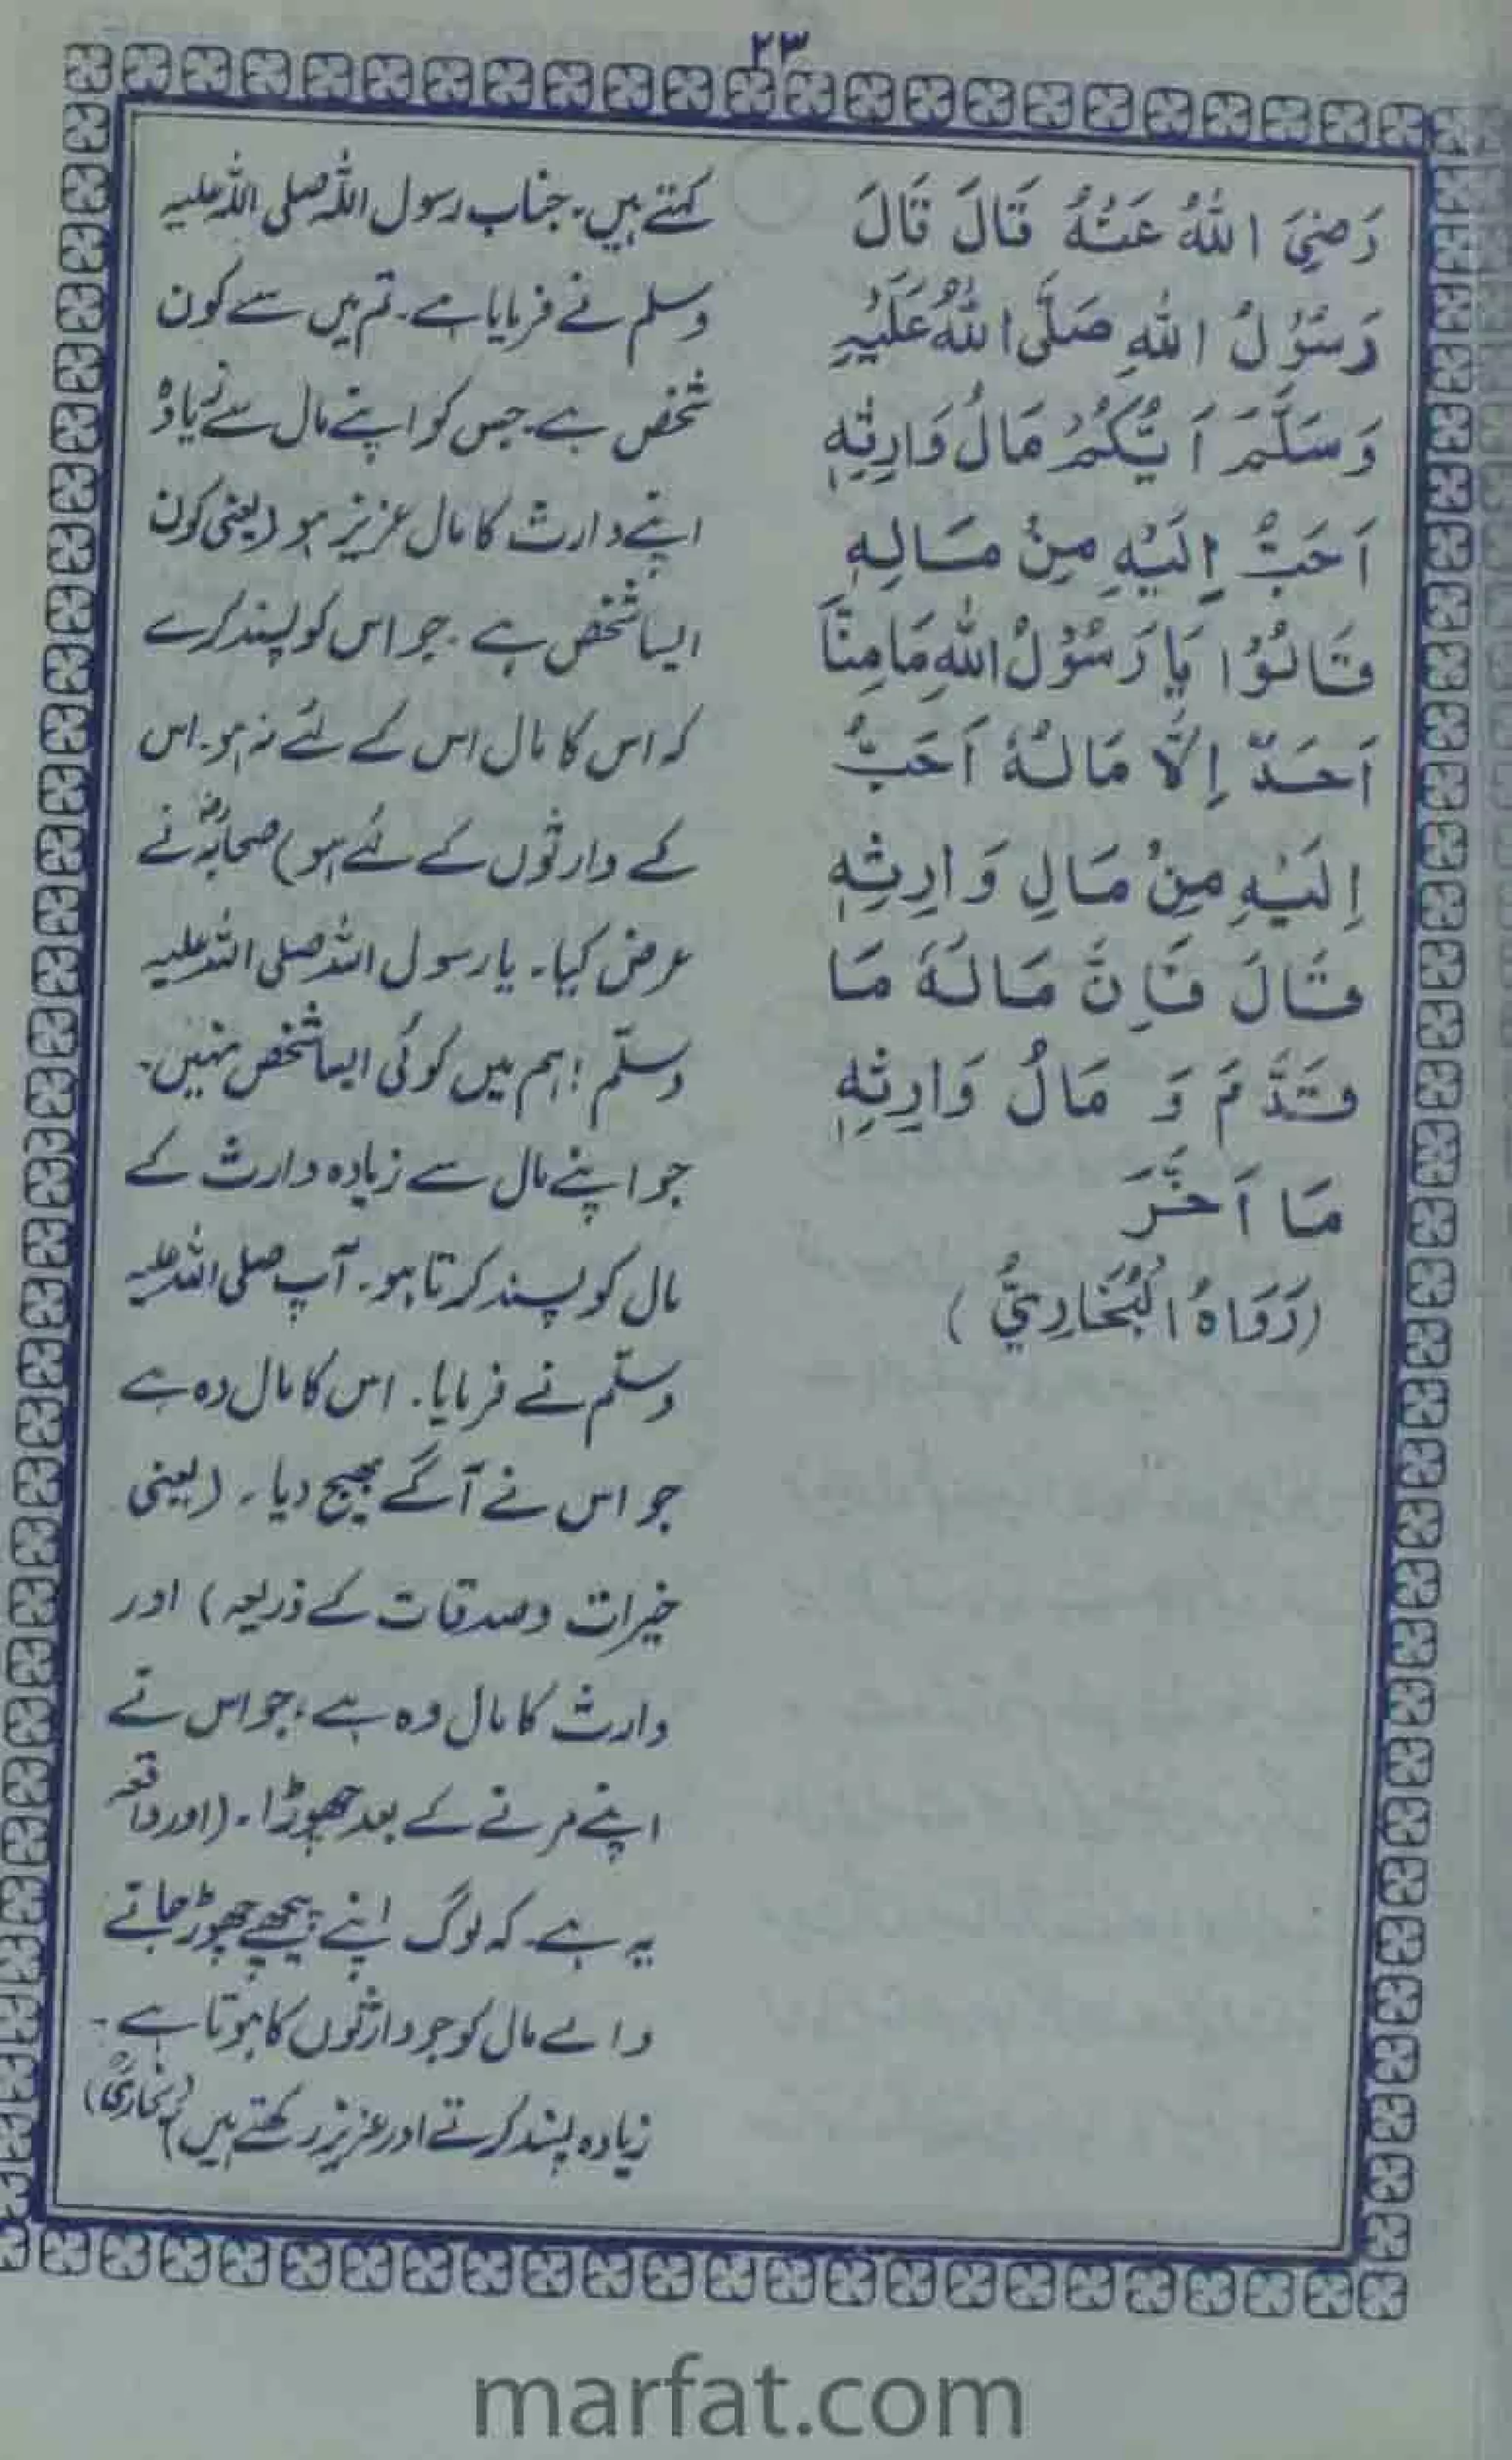 ۲۳
رَضِيَ اللّٰهُ عَنْهُ قَالَ قَالَ
رَسُوْلُ اللّٰهِ صَلَّى اللّٰهُ عَلَيْهِ
وَسَلَّمَ اَيُّكُمْ مَالُ وَارِثِهٖ
اَحَبُّ اِلَيْهِ مِنْ مَالِهٖ
قَالُوْا يَا رَسُوْلُ اللّٰهِ مَا مِنَّا
اَحَدٌ اِلَّا مَالُهٗ اَحَبُّ
اِلَيْهِ مِنْ مَالِ وَارِثِهٖ
قَالَ فَاِنَّ مَالَهٗ مَا
قَدَّمَ وَ مَالُ وَارِثِهٖ
مَا اَخَّرَ
(رَوَاهُ الْبُخَارِيُّ)
کہتے ہیں۔ جناب رسول اللہ صلی اللہ علیہ
وسلم نے فرمایا ہے۔ تم میں سے کون
شخص ہے۔ جس کو اپنے مال سے زیادہ
اپنے وارث کا مال عزیز ہو (یعنی کون
ایسا شخص ہے ۔ جو اس کو پسند کرے
کہ اس کا مال اس کے لئے نہ ہو۔ اس
کے وارثوں کے لئے ہو) صحابہؓ نے
عرض کیا۔ یا رسول اللہ صلی اللہ علیہ
وسلّم ! ہم میں کوئی ایسا شخص نہیں۔
جو اپنے مال سے زیادہ وارث کے
مال کو پسند کرتا ہو۔ آپ صلی اللہ علیہ
وسلّم نے فرمایا۔ اس کا مال وہ ہے
جو اس نے آگے بھیج دیا ۔ (یعنی
خیرات و صدقات کے ذریعہ) اور
وارث کا مال وہ ہے ، جو اس نے
اپنے مرنے کے بعد چھوڑا ۔ (اور واقعہ
یہ ہے۔ کہ لوگ اپنے پیچھے چھوڑ جانے
والے مال کو جو وارثوں کا ہوتا ہے ۔
زیادہ پسند کرتے اور عزیز رکھتے ہیں) (بخاریؒ)
marfat.com